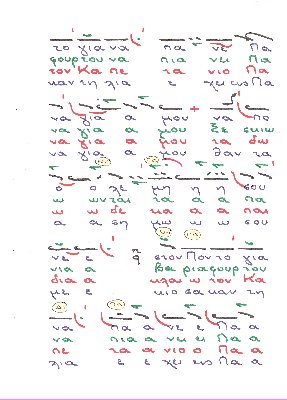 το για να πα νε Πα
φουρτου να πια νει Πα
τον Κα πε τα νιο Πα
καν τη λια ε χει ως Πα
να για α μου να πο
να για α μου ξε σκιω
να για α μου τα δω
να για α μου θαν τα
ο ο λε μη η η σου
ω ω νται τα α α πα
ω ω δε κα α α παι
α α ση μω ω ω σου
νε ε στον Πον το για
νια α βα ρια φουρτου
δια α κλαι ω τον Κα
με ε κιο σα καν τη
να πα α νε ε Πα α
να πια α νει ει Πα α
πε τα α νιο ο Πα α
λια ε ε χει ως Πα α